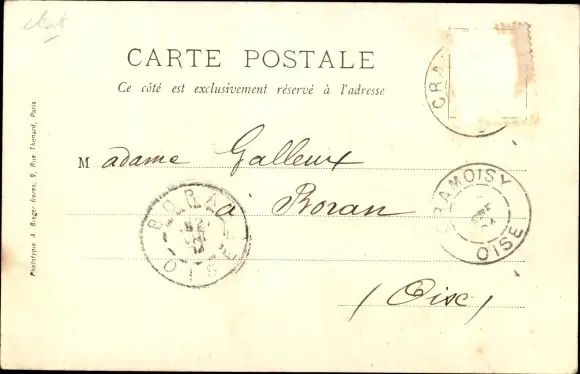 CARTE POSTALE
Ce côté est exclusivement réservé à l'adresse
CRA
Madame Galleux
à Boran
(Oise)
CRAMOISY
OISE
BORAN
OISE
Phototypie A. Breger frères, 9, Rue Thénard, Paris